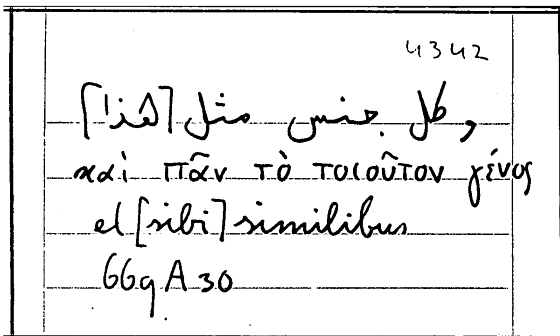 4342
وكل جنس مثل [هذا]
καὶ πᾶν τὸ τοιοῦτον γένος
el [sibi] similibus
669 A 30